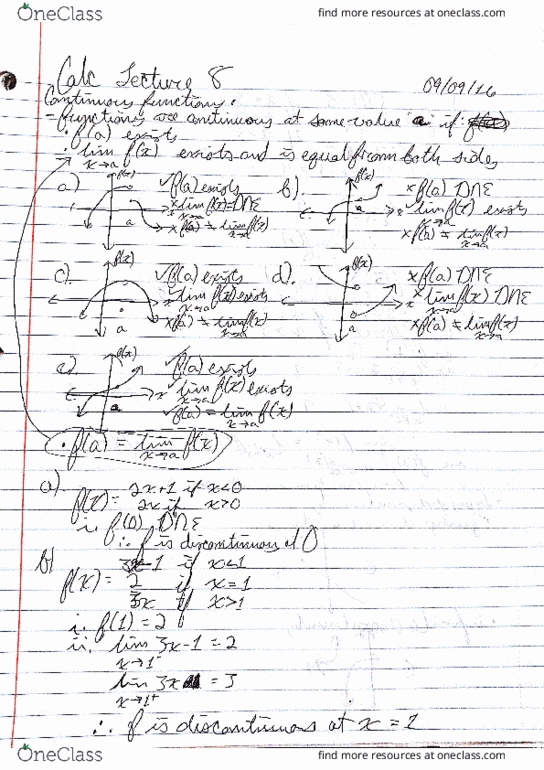 OneClass
find more resources at oneclass.com
Calc Lecture 8
09/09/16
Continuous functions:
- functions are continuous at some value a if:
· f(a) exists
· lim f(x) exists and is equal from both sides
x→a
a)
f(x)
a
✓f(a) exists
×lim f(x) = DNE
x→a
×f(a) ≠ lim f(x)
x→a
b)
f(x)
x
a
×f(a) DNE
✓lim f(x) exists
x→a
×f(a) ≠ lim f(x)
x→a
c)
f(x)
x
a
✓f(a) exists
✓lim f(x) exists
x→a
×f(a) ≠ lim f(x)
x→a
d)
f(x)
x
a
×f(a) DNE
×lim f(x) DNE
x→a
×f(a) ≠ lim f(x)
x→a
e)
f(x)
x
a
✓f(a) exists
✓lim f(x) exists
x→a
✓f(a) = lim f(x)
x→a
· f(a) = lim f(x)
x→a
a)
f(x) = 2x+1 if x<0
2x if x>0
i. f(0) DNE
∴ f is discontinuous at 0
b)
3x-1 if x<1
f(x) = 2 if x=1
3x if x>1
i. f(1) = 2
ii. lim 3x-1 = 2
x→1⁻
lim 3x = 3
x→1⁺
∴ f is discontinuous at x = 1
OneClass
find more resources at oneclass.com